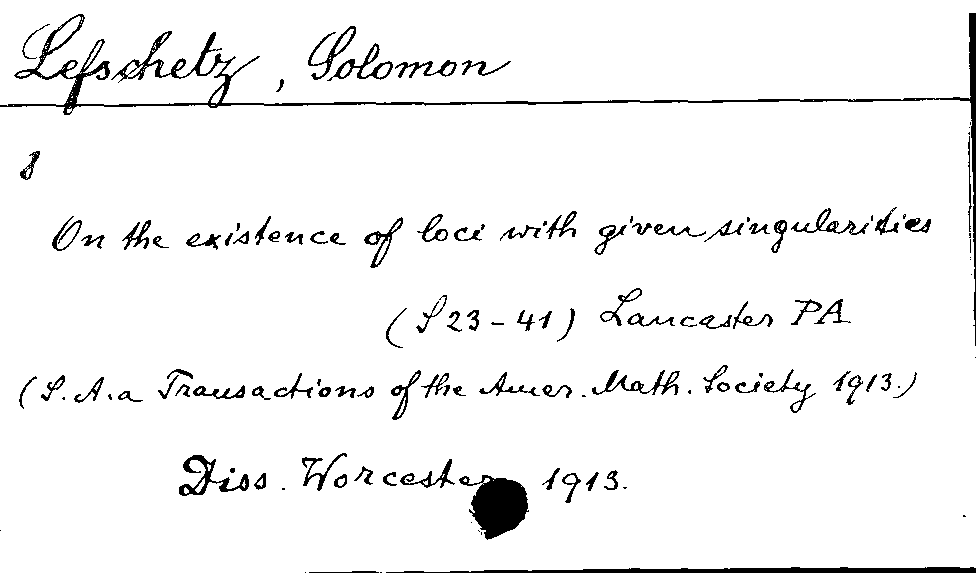 Lefschetz, Solomon
8
On the existence of loci with given singularities
(S 23-41) Lancaster PA
(S.A.a Transactions of the Amer. Math. Society 1913.)
Diss. Worcester 1913.